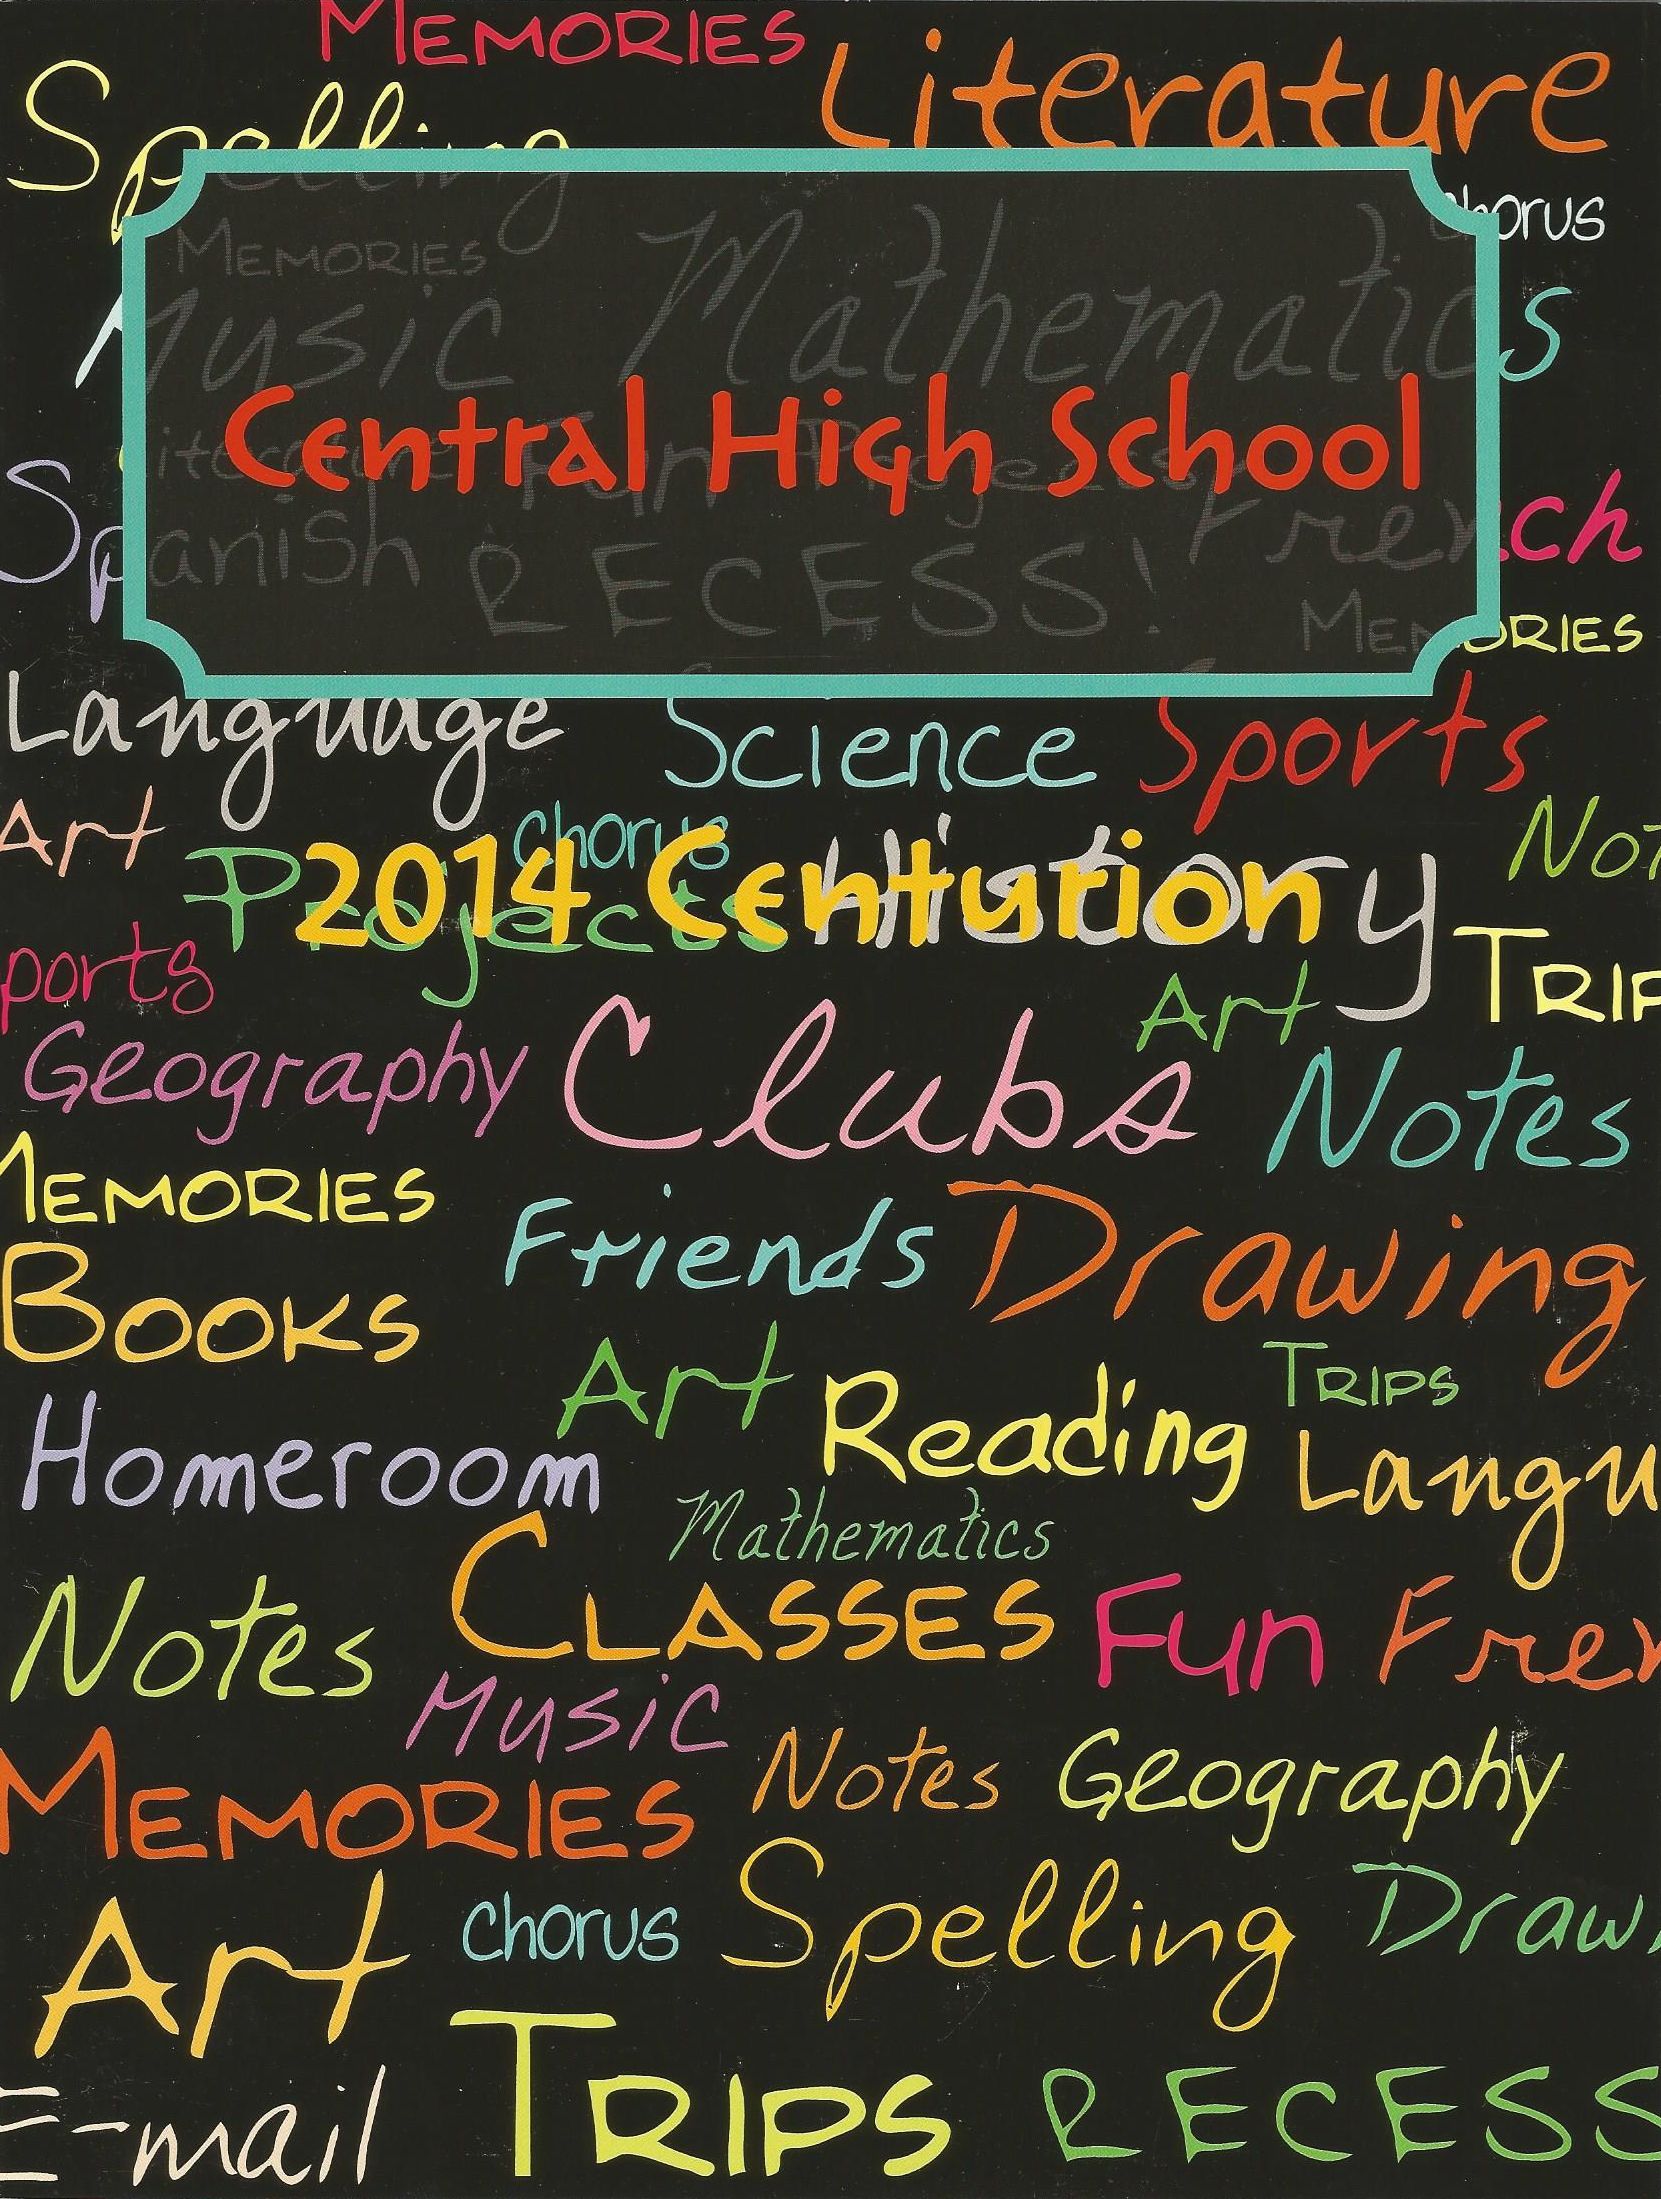 MEMORIES Literature
Spelling
chorus
MEMORIES
Music Mathematics
Central High School
Fun
Spanish RECESS! French
MEMORIES
Language Science Sports
Art chorus Not
2014 Centurion
Projects History
ports Art TRIP
Geography Clubs Notes
MEMORIES
Friends Drawing
BOOKS
Art Reading TRIPS
Homeroom Langu
Mathematics
Notes CLASSES Fun Fren
Music
MEMORIES Notes Geography
Art chorus Spelling Draw
E-mail TRIPS RECESS